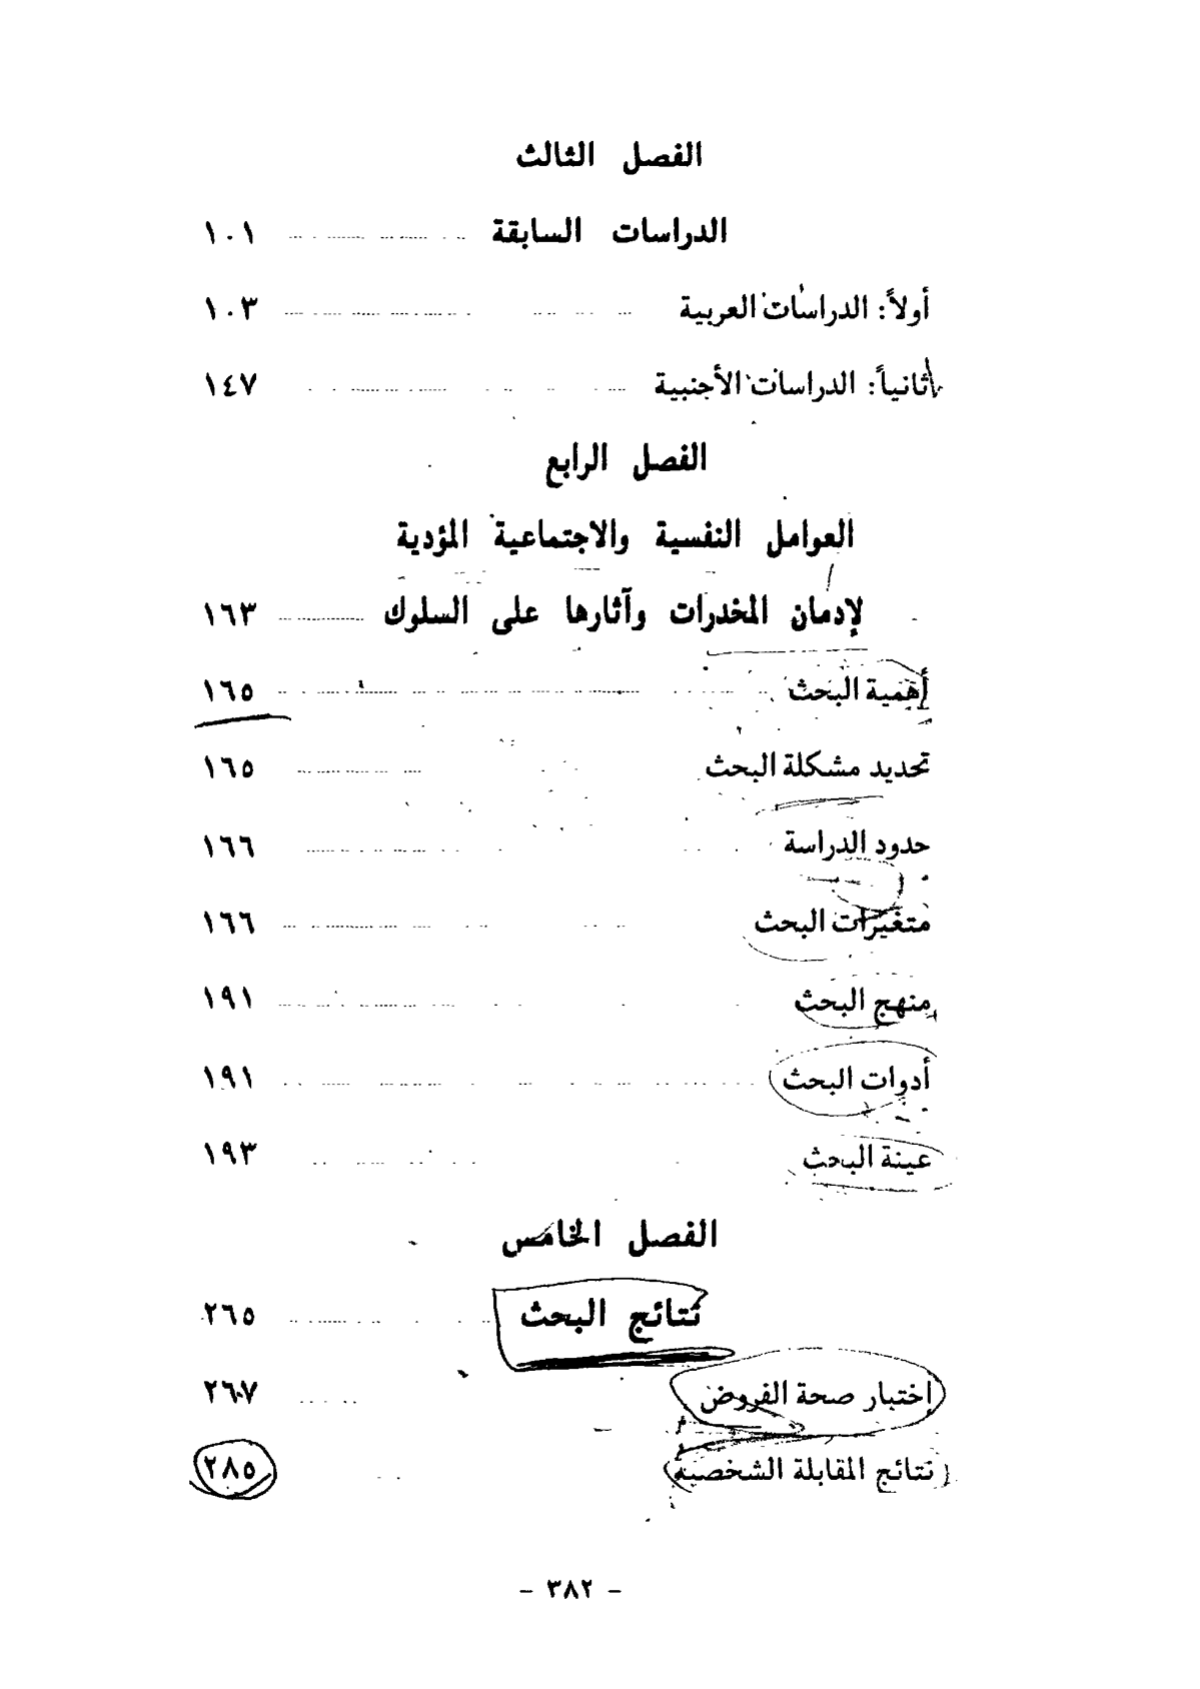 الفصل الثالث
الدراسات السابقة ١٠١
أولاً: الدراسات العربية ١٠٣
ثانياً: الدراسات الأجنبية ١٤٧
الفصل الرابع
العوامل النفسية والاجتماعية المؤدية
لإدمان المخدرات وآثارها على السلوك ١٦٣
أهمية البحث ١٦٥
تحديد مشكلة البحث ١٦٥
حدود الدراسة ١٦٦
متغيرات البحث ١٦٦
منهج البحث ١٩١
أدوات البحث ١٩١
عينة البحث ١٩٣
الفصل الخامس
نتائج البحث ٢٦٥
إختبار صحة الفروض ٢٦٧
نتائج المقابلة الشخصية ٢٨٥
- ٣٨٢ -